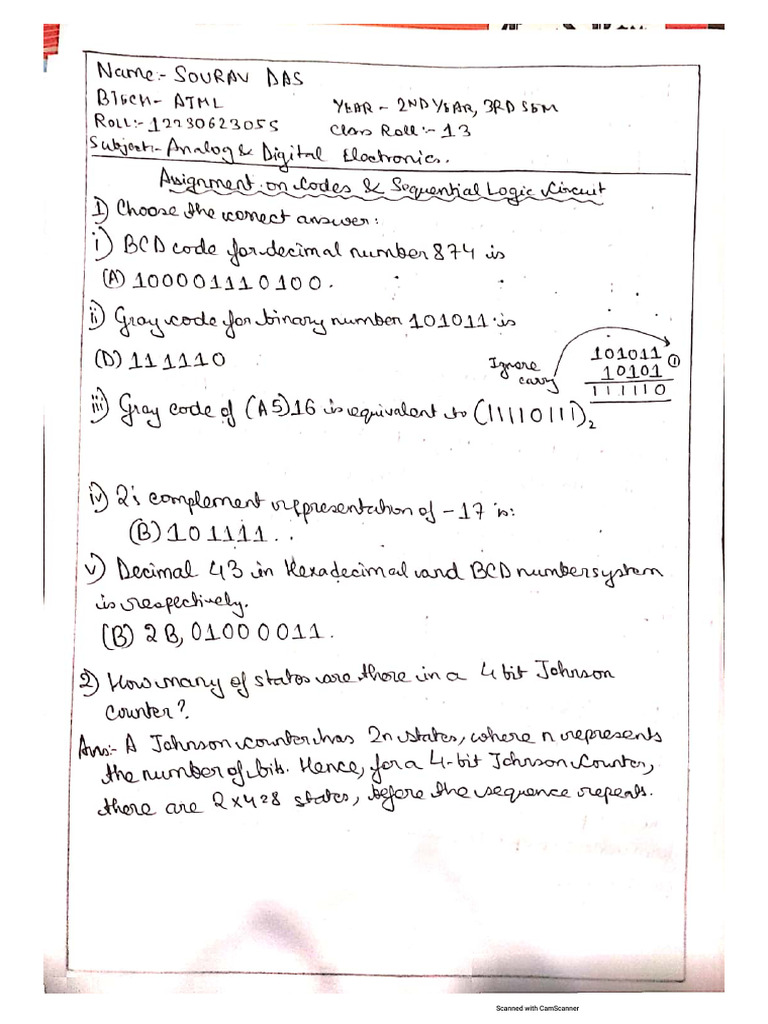 Name:- SOURAV DAS
BTECH- AIML YEAR - 2ND YEAR, 3RD SEM
ROLL:- 12230623055 Class Roll:- 13
Subject:- Analog & Digital Electronics.
Assignment on Codes & Sequential Logic Circuit
1) Choose the correct answer:
i) BCD code for decimal number 874 is
(A) 100001110100.
ii) Gray code for binary number 101011 is
(D) 111110
Ignore carry
101011 1
10101
111110
iii) Gray code of (A5)16 is equivalent to (11110111)2
iv) 2's complement representation of -17 is:
(B) 101111..
v) Decimal 43 in Hexadecimal and BCD number system
is respectively.
(B) 2B, 01000011.
2) How many of states are there in a 4 bit Johnson
counter?
Ans:- A Johnson counter has 2n states, where n represents
the number of bits. Hence, for a 4-bit Johnson Counter,
there are 2x4=8 states, before the sequence repeats.
Scanned with CamScanner